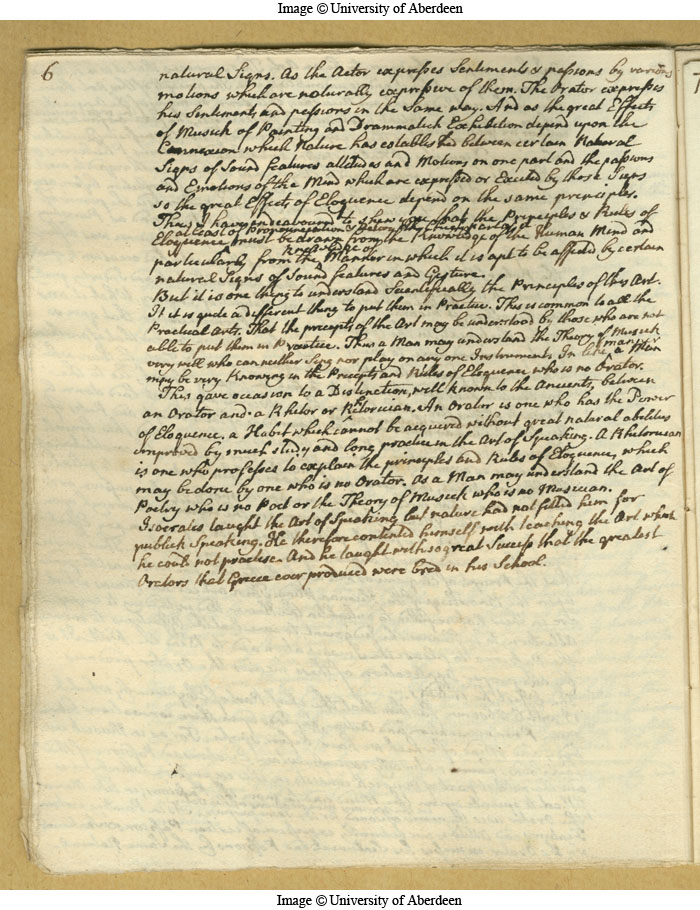 Image © University of Aberdeen
6
natural Signs. As the Actor expresses Sentiments & passions by various
motions which are naturally expressive of them. The Orator expresses
his Sentiments and passions in the same way. And as the great Effects
of Musick of Painting and Drammatick Exhibition depend upon the
Connexion which Nature has established between certain Natural
Signs of Sound features attitudes and Motions on one part and the passions
and Emotions of the Mind which are expressed or Excited by those Signs
so the great Effects of Eloquence depend on the same principles.
Thus I have endeavoured to shew you that the Principles & Rules of
at least of Pronounciation &
Eloquence must be drawn from the Knowledge of the Human Mind and
knowledge of
particularly from the Manner in which it is apt to be affected by certain
natural Signs of Sound features and Gesture.
But it is one thing to understand Scientifically the Principles of this Art.
It is quite a different thing to put them in Practice. This is common to all the
Practical Arts. That the precepts of the Art may be understood by those who are not
able to put them in Practice. Thus a Man may understand the Theory of Musick
very well who can neither Sing nor play on any one Instrument. In like manner a Man
may be very Knowing in the Precepts and Rules of Eloquence who is no Orator.
This gave occasion to a Distinction, well known to the Ancients, between
an Orator and a Rhetor or Rhetorician. An Orator is one who has the Power
of Eloquence. a Habit which cannot be acquired without great natural abilities
improved by much study and long practice in the Art of Speaking. A Rhetorician
is one who professes to explain the principles and Rules of Eloquence, which
may be done by one who is no Orator. as a Man may understand the Art of
Poetry who is no Poet or the Theory of Musick who is no Musician.
Isocrates taught the Art of Speaking but nature had not fitted him for
publick Speaking. He therefore contented himself with teaching the Art which
he could not practise. And he taught with so great Success that the greatest
Orators that Greece ever produced were bred in his School.
Image © University of Aberdeen